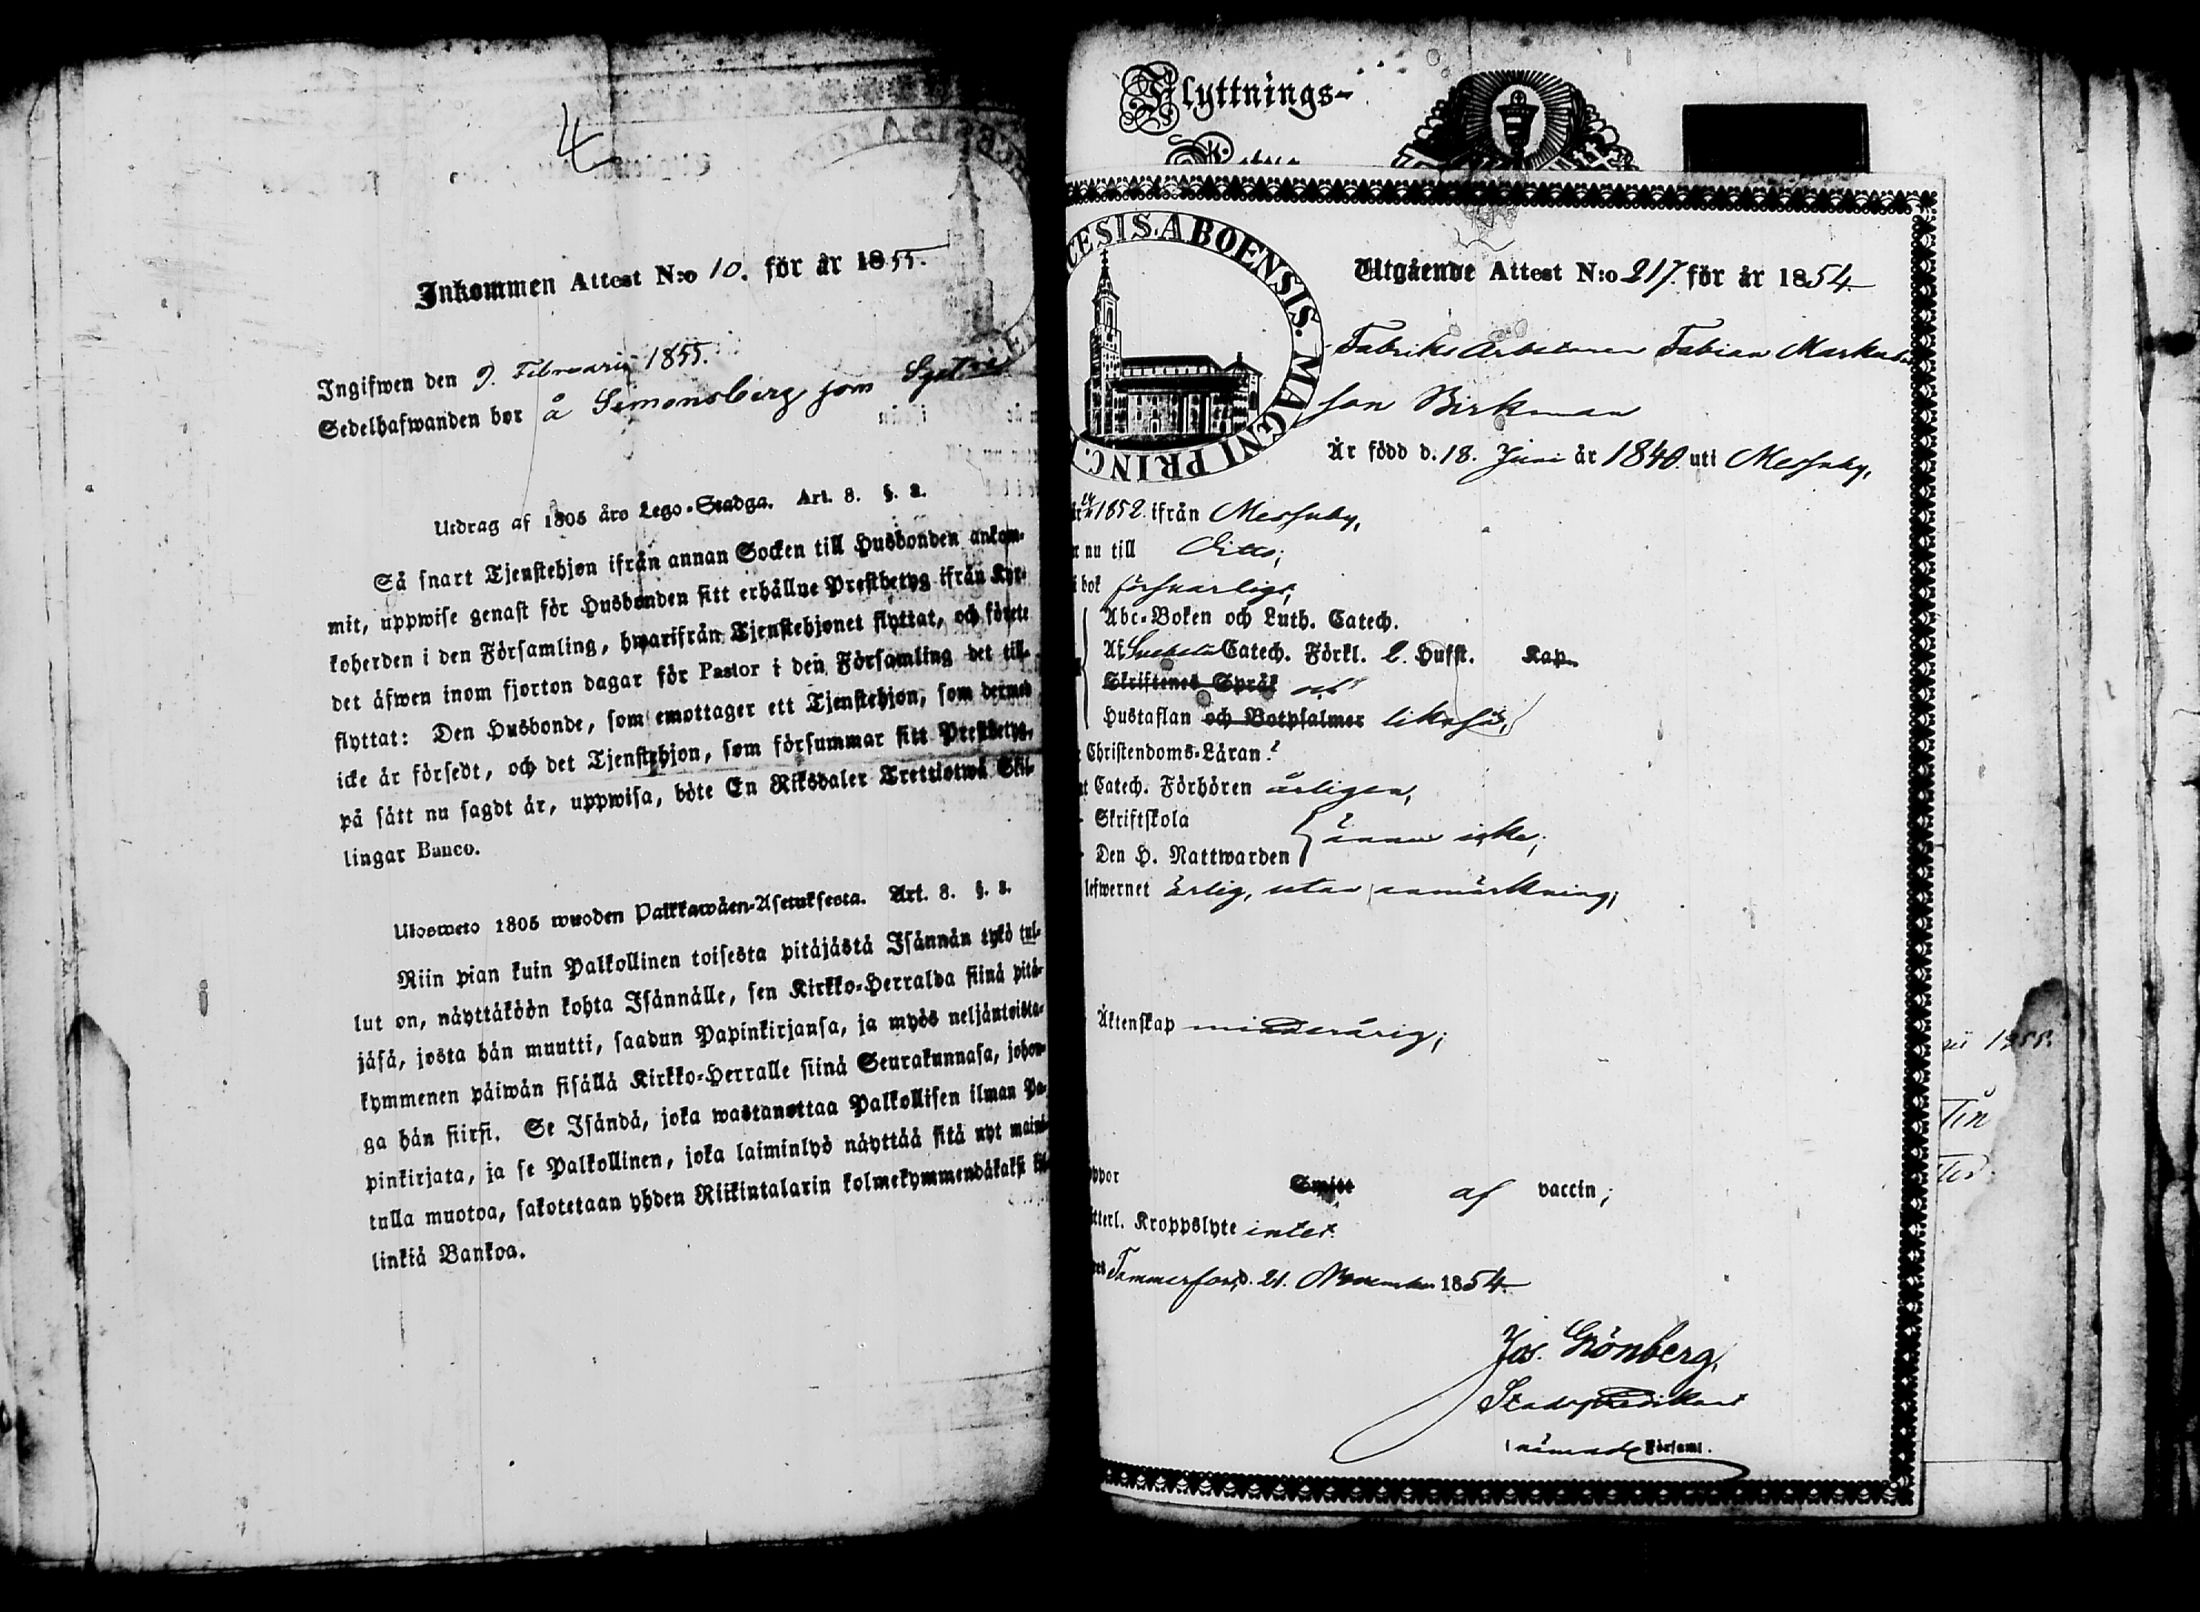 4
Inkommen Attest N:o 10. för år 1855.
Ingifwen den 9. Februarii 1855.
Sedelhafwanden bor å Simonsberg som
Utdrag af 1805 åro Lego-Stadga. Art. 8. §. 2.
Så snart Tjenstehjon ifrån annan Socken till Husbonden ankom-
mit, uppwise genast för Husbonden sitt erhållne Prestbetyg ifrån Kyr-
koherden i den Församling, hwarifrån Tjenstehjonet flyttat, och förete
det äfwen inom fjorton dagar för Pastor i den Församling det till-
flyttat: Den Husbonde, som emottager ett Tjenstehjon, som dermed
icke är försedt, och det Tjenstehjon, som försummar sitt Prestbetyg,
på sätt nu sagdt är, uppwisa, böte En Riksdaler Trettiotwå Skil-
lingar Banco.
Ulosweto 1805 wuoden Palkkawäen-Asetuksesta. Art. 8. §. 2.
Niin pian kuin Palkollinen toisesta pitäjästä Isännän tykö tul-
lut on, näyttäköön kohta Isännälle, sen Kirkko-Herralda siinä pitä-
jäsä, josta hän muutti, saadun Papinkirjansa, ja myös neljäntoista-
kymmenen päiwän sisällä Kirkko-Herralle siinä Seurakunnasa, johon-
ga hän siirsi. Se Isändä, joka wastanottaa Palkollisen ilman Pa-
pinkirjata, ja se Palkollinen, joka laiminlyö näyttää sitä nyt maini-
tulla muotoa, sakotetaan yhden Riikintalarin kolmekymmendäkaksi kil-
linkiä Bankoa.
Flyttnings-
CESIS. ABOENSIS. MAGNI PRINC.
Utgående Attest N:o 217. för år 1854.
Fabriks Arbetaren Fabian Markus
son Birkman
Är född d. 18. Juni år 1840. uti Messuby,
1852. ifrån Messuby,
nu till Ditto;
i bok försvarligt,
Abc-Boken och Luth. Catech.
Af Svebelii Catech. Förkl. 2. Hufst. Kap.
Skriftenes Språk och
Hustaflan och Botpsalmer likaså,
Christendoms-Läran.
Catech. Förhören årligen,
Skriftskola
Den H. Nattwarden } ännu icke;
lefwernet ärlig, utan anmärkning;
Äktenskap minderårig;
ppor Smitt af vaccin;
tterl. Kroppslyte intet.
Tammerfors, d. 21. November 1854.
Jos. Grönberg,
Stadspredikant
i nämnde Församl.
1855.